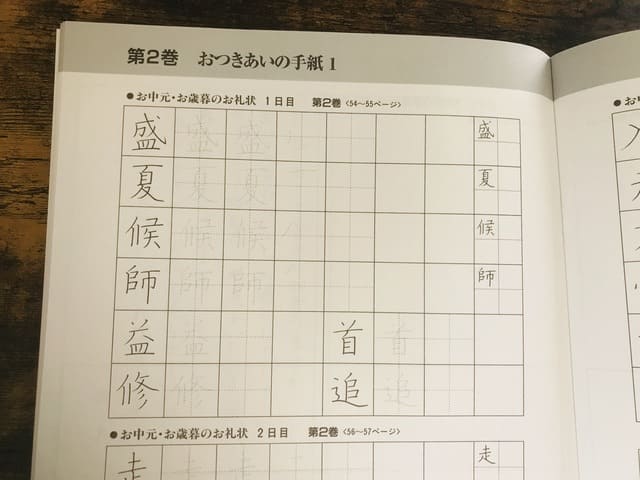 第2巻 おつきあいの手紙 1
●お中元・お歳暮のお礼状 1日目 第2巻〈54~55ページ〉
盛 盛 盛 盛
夏 夏 夏 夏
候 候 候 候
師 師 師 師
益 益 首 首
修 修 追 追
●お中元・お歳暮のお礼状 2日目 第2巻〈56~57ページ〉
走 走
●お中